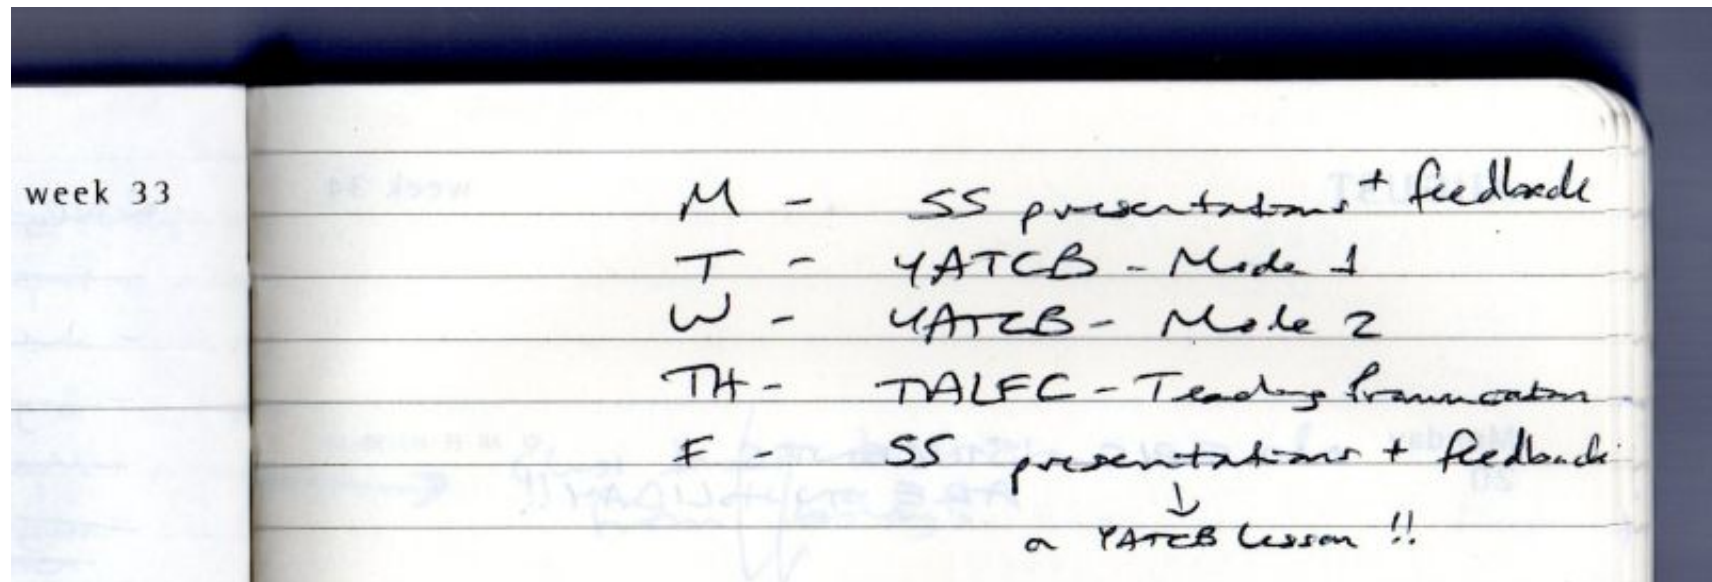 week 33
M - SS presentations + feedback
T - YATCB - Mode 1
W - YATCB - Mode 2
TH - TALFC - Teaching Pronunciation
F - SS presentations + feedback
↓
a YATCB lesson !!